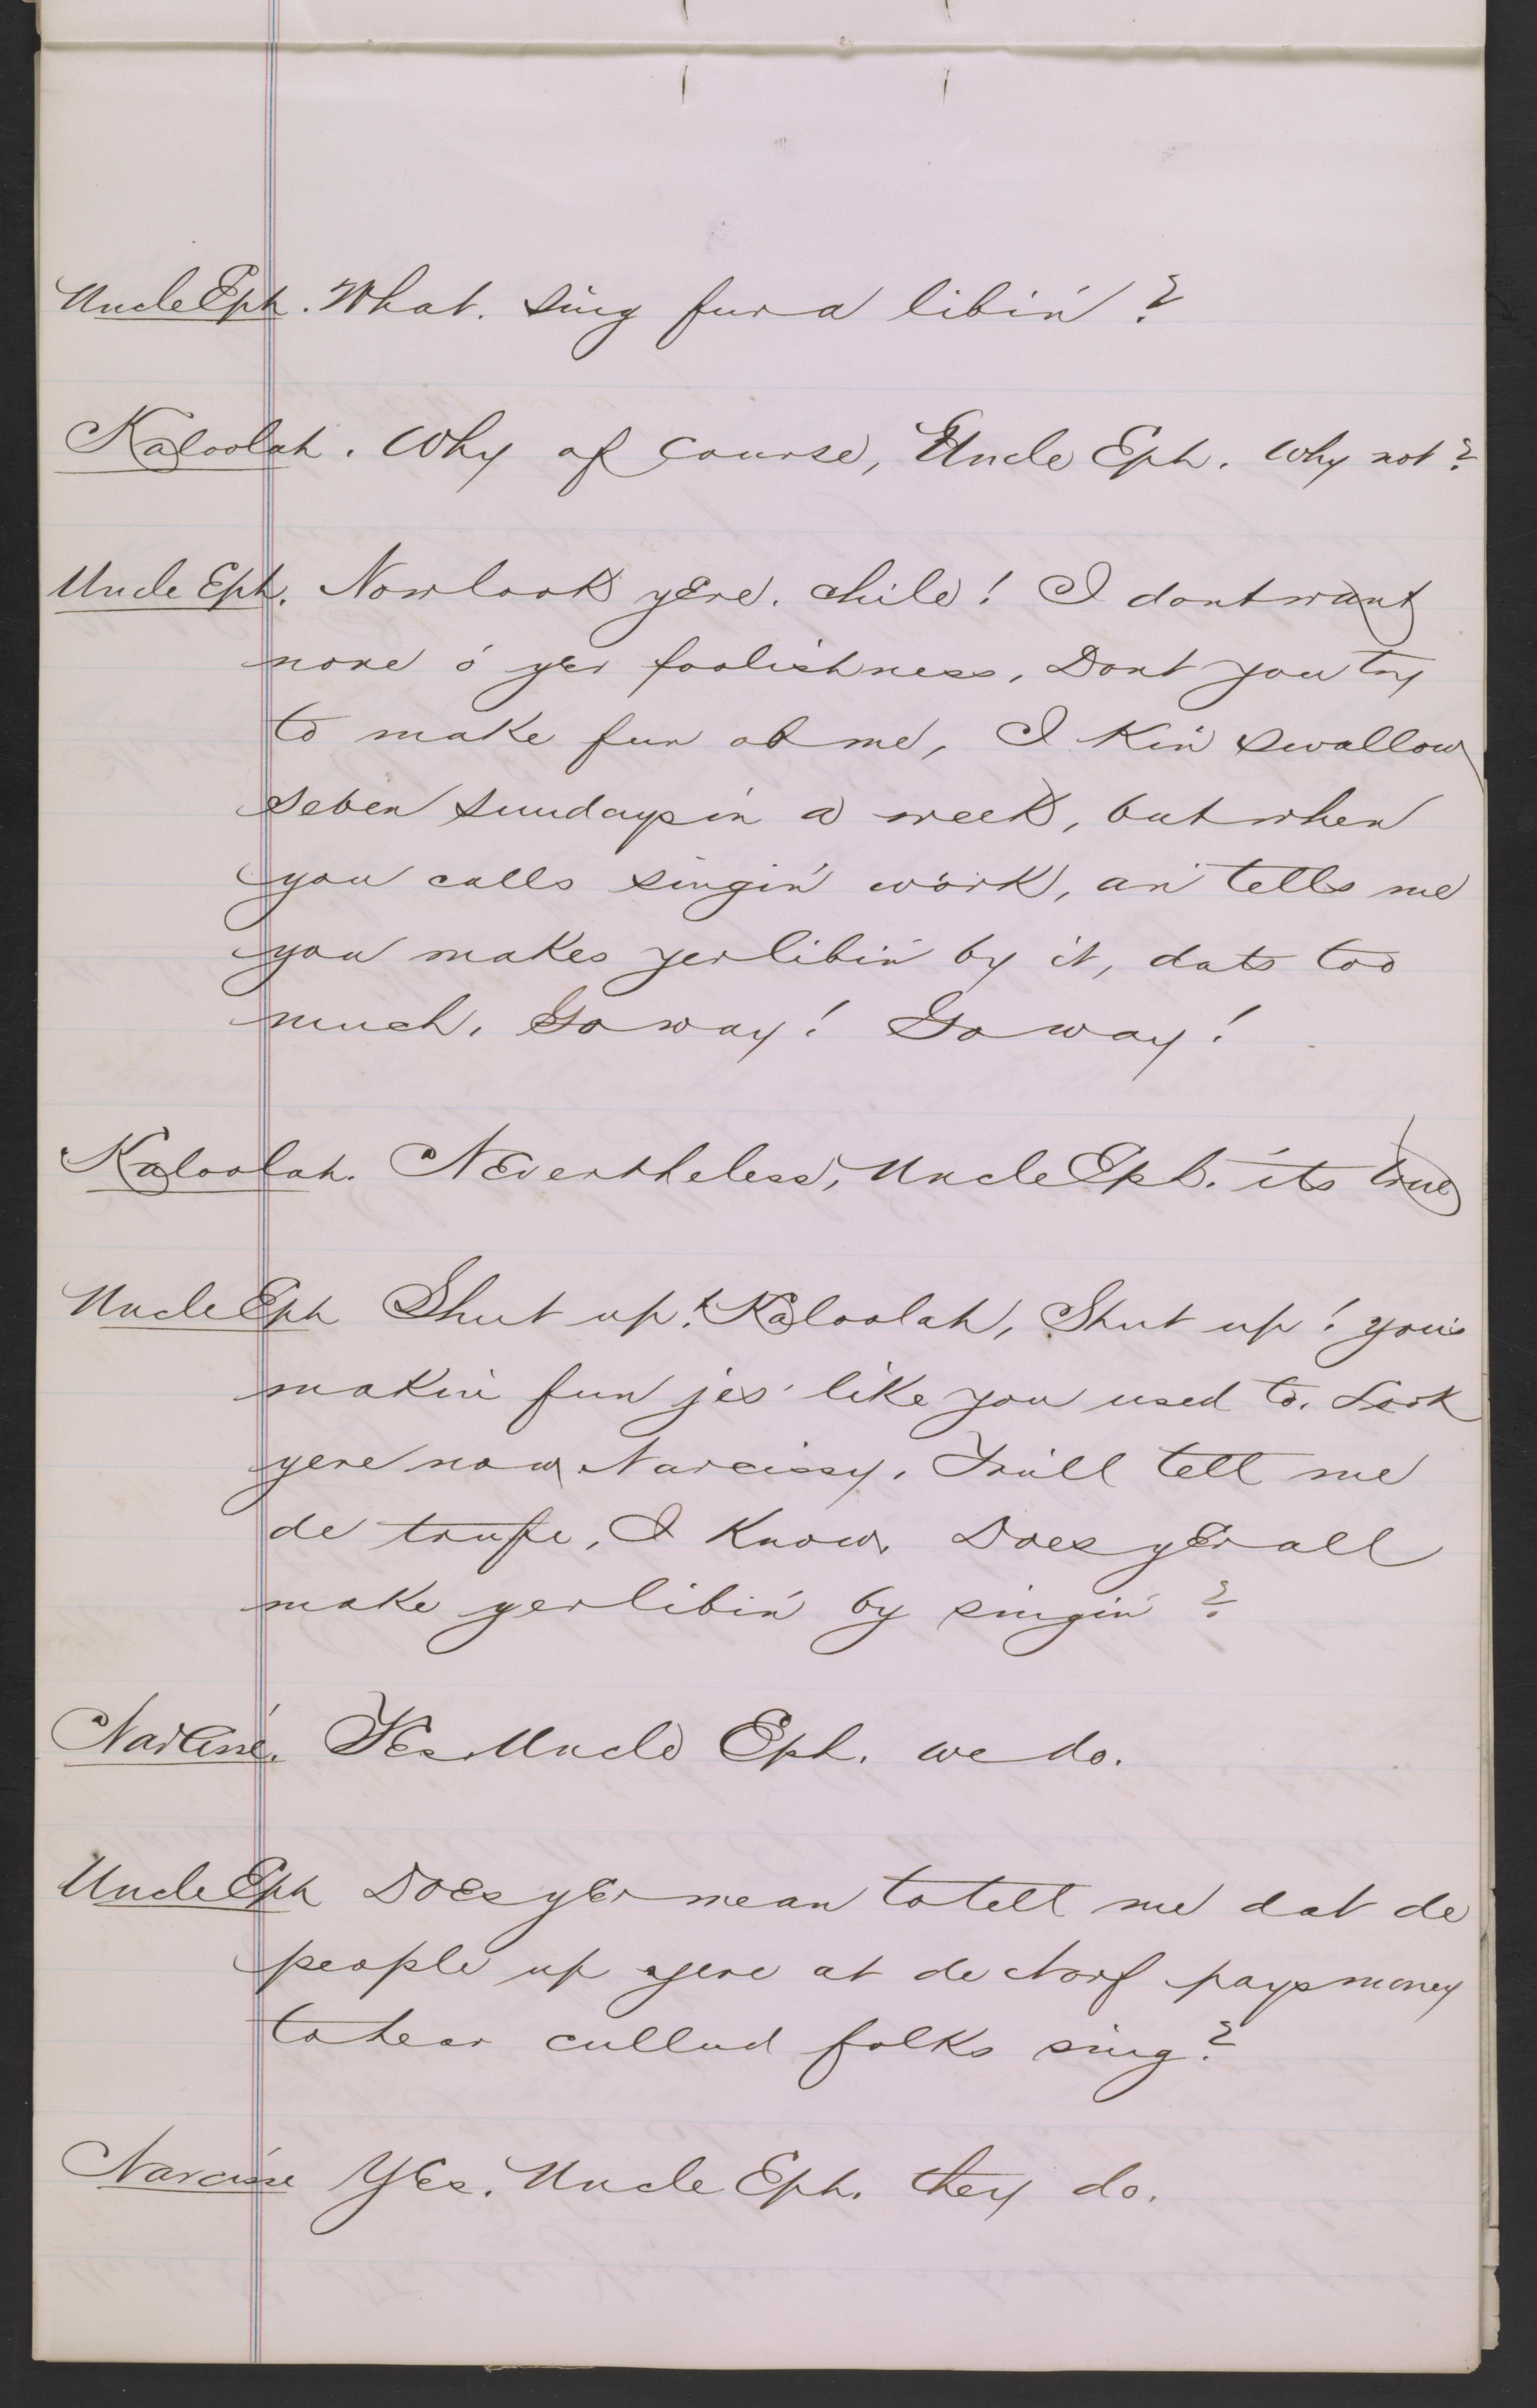 Uncle Eph. What. Sing fur a libin'?
Kaloolah. Why of course, Uncle Eph. Why not?
Uncle Eph. Now look yere. chile! I dont want
none o' yer foolishness, Dont you try
to make fun ob me, I kin swallow
seben sundays in a week, but when
you calls singin' work, an' tells me
you makes yer libin' by it, dats too
much. Go way! Go way!
Kaloolah. Nevertheless, Uncle Eph. its true
Uncle Eph Shut up! Kaloolah, Shut up! you's
makin' fun jes' like you used to. Look
yere now Narcissy, You'll tell me
de trufe, I know. Does yer all
make yer libin' by singin'?
Narcisse. Yes. Uncle Eph. we do.
Uncle Eph Does yer mean to tell me dat de
people up yere at de Norf pays money
to hear cullud folks sing?
Narcisse Yes. Uncle Eph. they do.